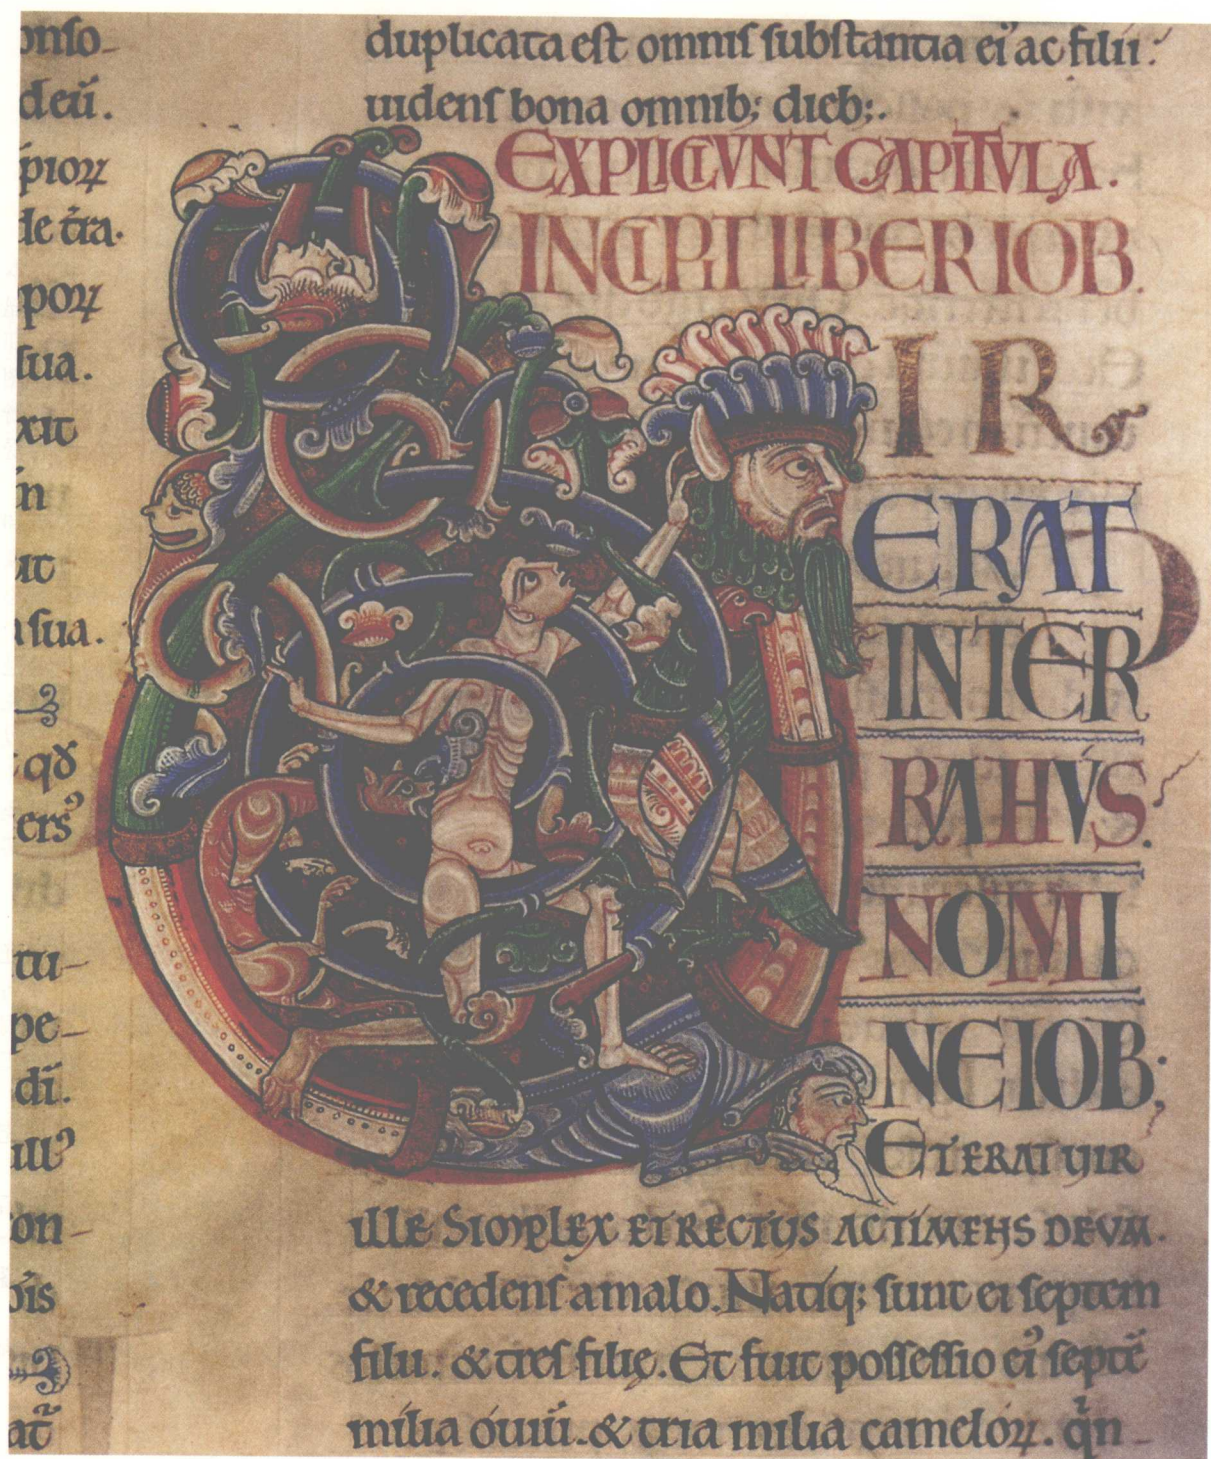 onso-
deū.
pioꝝ
de t̄ra.
poꝝ
sua.
xit
in
ut
a sua.
qđ
ers᾽
tu-
pe-
di.
ill᾽
on-
ōis
at̄
duplicata est omnis substantia ei᾽ ac filii
uidens bona omnib; dieb;.
EXPLICIUNT CAPITULA.
INCIPIT LIBER IOB.
VIR
ERAT
INTER
RA HUS.
NOMI
NE IOB;
ET ERAT UIR
ILLE SIMPLEX ET RECTUS AC TIMENS DEUM.
& recedens a malo. Natiq; sunt ei septem
filii. & tres filię. Et fuit possessio ei᾽ septē
milia ouiū. & tria milia cameloꝝ. q̄n-